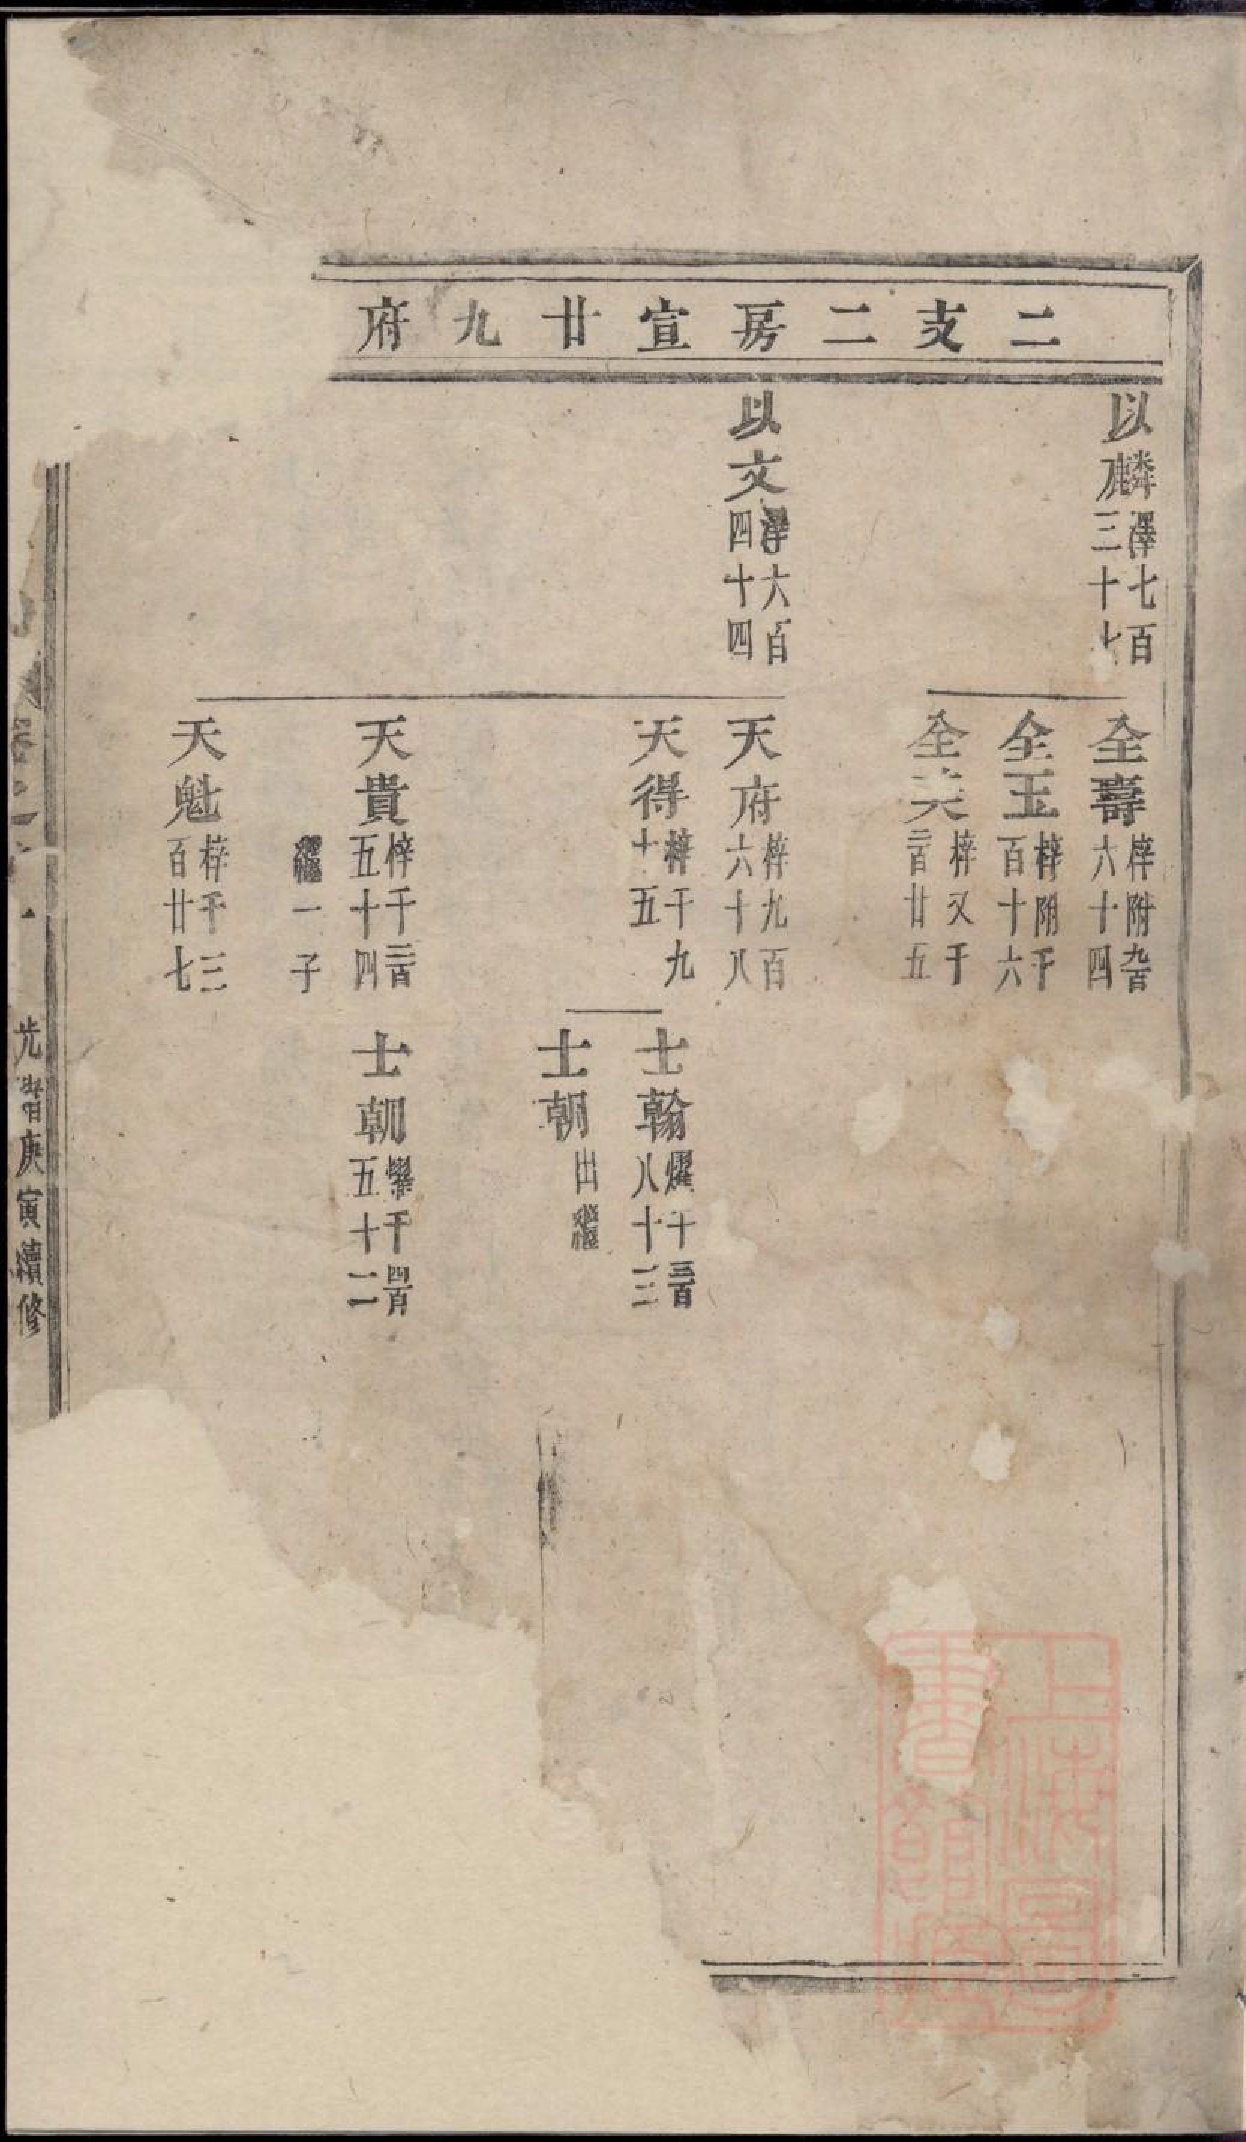 二支二房宣廿九府
以麟澤七百三十七
全壽梓附九百六十四
全玉梓附千百十六
全梓又千三百廿五
以文澤六百四十四
天府梓九百六十八
天得梓千九十五
士翰燿千三百八十三
士朝出繼
天貴梓千三百五十四
繼一子
士朝燿千四百五十二
天魁梓千三百廿七
光緒庚寅續修
上海圖書館藏